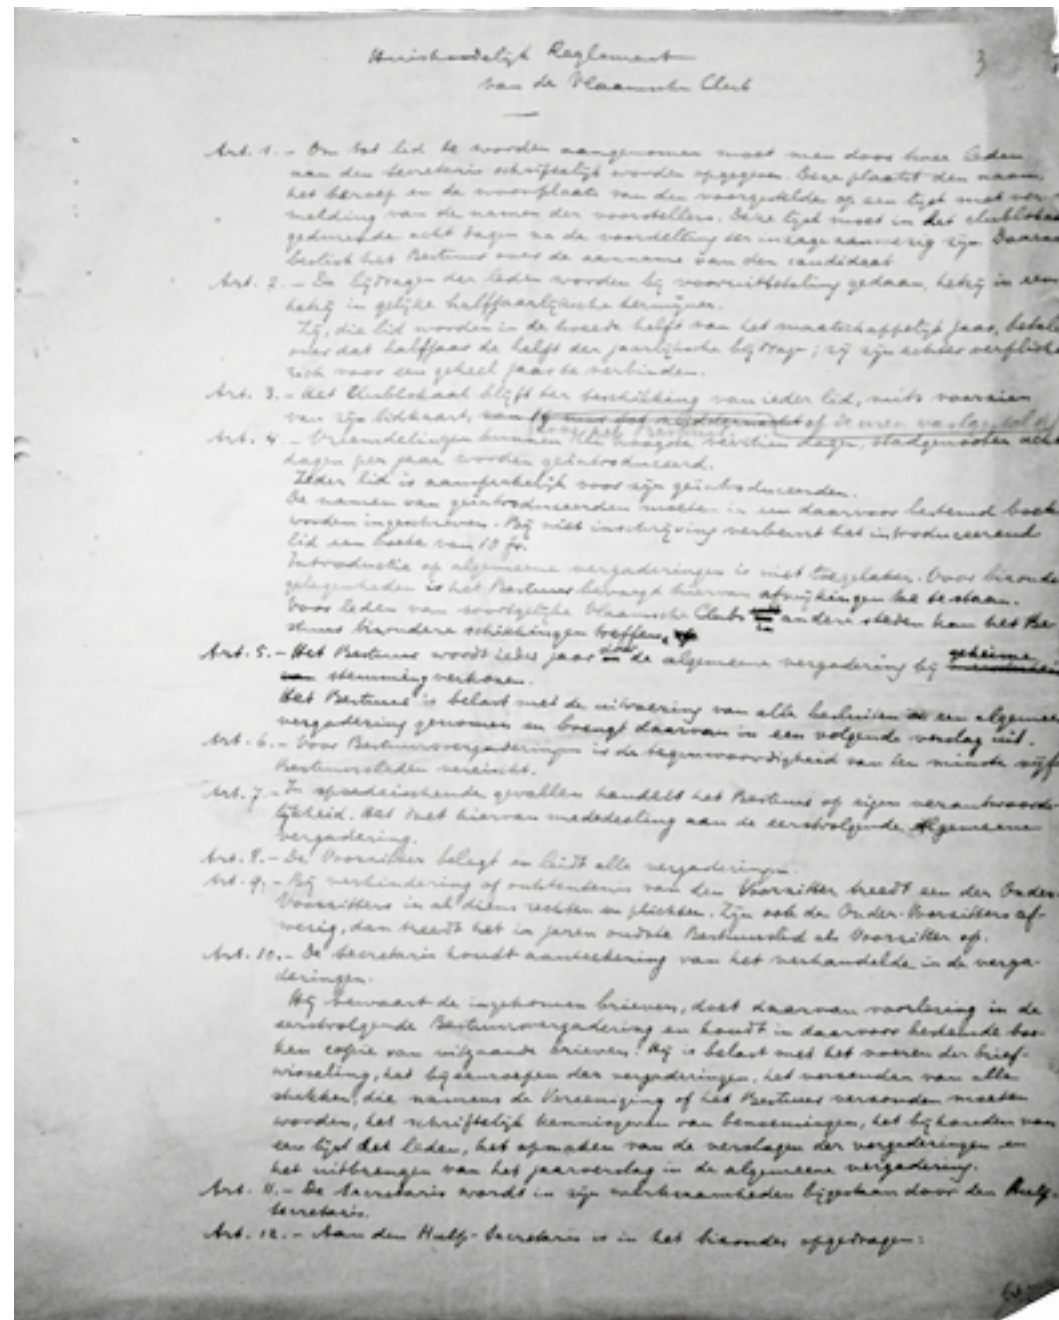 Huishoudelijk Reglement
3
van de Vlaamsche Club
Art. 1. - Om tot lid te worden aangenomen moet men door twee leden
aan den Secretaris schriftelijk worden opgegeven. Deze plaatst den naam,
het beroep en de woonplaats van den voorgestelde op een lijst met ver-
melding van de namen der voorstellers. Deze lijst moet in het clublokaal
gedurende acht dagen na de voorstelling ter inzage aanwezig zijn. Daarna
beslist het Bestuur over de aanname van den candidaat.
Art. 2. - De bijdragen der leden worden bij vooruitbetaling gedaan, hetzij in eens
hetzij in gelijke halfjaarlijksche termijnen.
Zij, die lid worden in de tweede helft van het maatschappelijk jaar, betalen
over dat halfjaar de helft der jaarlijksche bijdrage; zij zijn echter verplicht
zich voor een geheel jaar te verbinden.
Art. 3. - Het Clublokaal blijft ter beschikking van ieder lid, mits voorzien
van zijn lidkaart,
Art. 4. - Vreemdelingen kunnen ten hoogste veertien dagen, stadgenooten acht
dagen per jaar worden geïntroduceerd.
Ieder lid is aansprakelijk voor zijn geïntroduceerden.
De namen van geïntroduceerden moeten in een daarvoor bestemd boek
worden ingeschreven. Bij niet inschrijving verbeurt het introduceerend
lid een boete van 10 fr.
Introductie op algemeene vergaderingen is niet toegelaten. Voor bizondere
gelegenheden is het Bestuur bevoegd hiervan afwijkingen toe te staan.
Voor leden van soortgelijke Vlaamsche Clubs in andere steden kan het Be-
stuur bizondere schikkingen treffen.
Art. 5. - Het Bestuur wordt ieder jaar door de algemeene vergadering bij geheime
stemming verkozen.
Het Bestuur is belast met de uitvoering van alle besluiten in een algemeene
vergadering genomen en brengt daarvan in een volgende verslag uit.
Art. 6. - Voor Bestuursvergaderingen is de tegenwoordigheid van ten minste vijf
Bestuursleden vereischt.
Art. 7. - In spoedeischende gevallen handelt het Bestuur op eigen verantwoorde-
lijkheid. Het doet hiervan mededeeling aan de eerstvolgende Algemeene
vergadering.
Art. 8. - De Voorzitter belegt en leidt alle vergaderingen.
Art. 9. - Bij verhindering of ontstentenis van den Voorzitter treedt een der Onder-
Voorzitters in al diens rechten en plichten. Zijn ook de Onder-Voorzitters af-
wezig, dan treedt het in jaren oudste Bestuurslid als Voorzitter op.
Art. 10. - De Secretaris houdt aanteekening van het verhandelde in de verga-
deringen.
Hij bewaart de ingekomen brieven, doet daarvan voorlezing in de
eerstvolgende Bestuursvergadering en houdt in daarvoor bestemde boe-
ken copie van uitgaande brieven. Hij is belast met het voeren der brief-
wisseling, het bijeenroepen der vergaderingen, het verzenden van alle
stukken, die namens de Vereeniging of het Bestuur verzonden moeten
worden, het schriftelijk kennisgeven van benoemingen, het bijhouden van
een lijst der leden, het opmaken van de verslagen der vergaderingen en
het uitbrengen van het jaarverslag in de algemeene vergadering.
Art. 11. - De Secretaris wordt in zijn werkzaamheden bijgestaan door den Hulp-
Secretaris.
Art. 12. - Aan den Hulp-Secretaris is in het bizonder opgedragen: